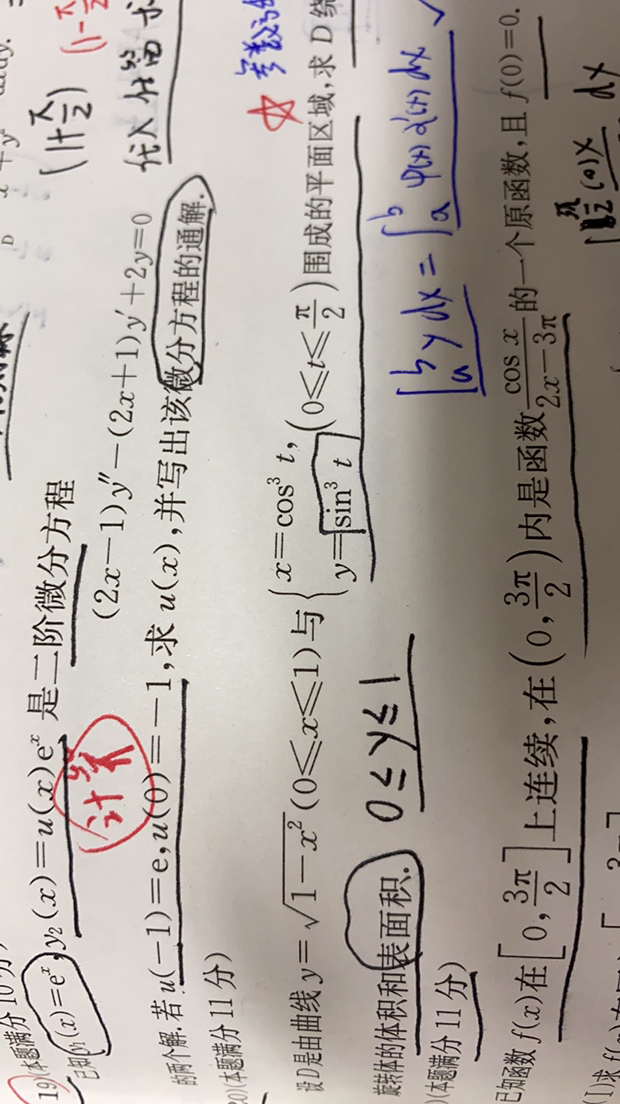 (1+π/2) (1-π
代入 估算 求
19 (本题满分 10 分)
已知 y₁(x)=eˣ, y₂(x)=u(x)eˣ 是二阶微分方程
(2x-1)y″-(2x+1)y′+2y=0
计算
的两个解.若 u(-1)=e,u(0)=-1,求 u(x),并写出该微分方程的通解.
20)(本题满分 11 分)
设 D 是由曲线 y=√(1-x²) (0≤x≤1) 与 { x=cos³ t, y=sin³ t (0≤t≤π/2) 围成的平面区域,求 D 绕
旋转体的体积和表面积.
0≤y≤1
∫ₐᵇ y dx = ∫ₐᵇ φ(t) d(t) dx
)(本题满分 11 分)
已知函数 f(x)在[0, 3π/2]上连续,在(0, 3π/2)内是函数 cos x/(2x-3π) 的一个原函数,且 f(0)=0.
(1)求